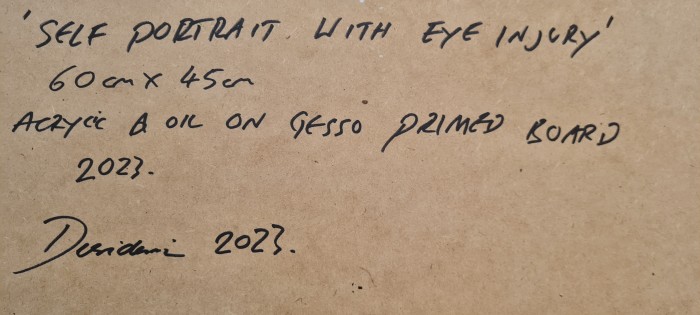 'SELF PORTRAIT WITH EYE INJURY'
60cm x 45cm
ACRYLIC & OIL ON GESSO PRIMED BOARD
2023.
2023.